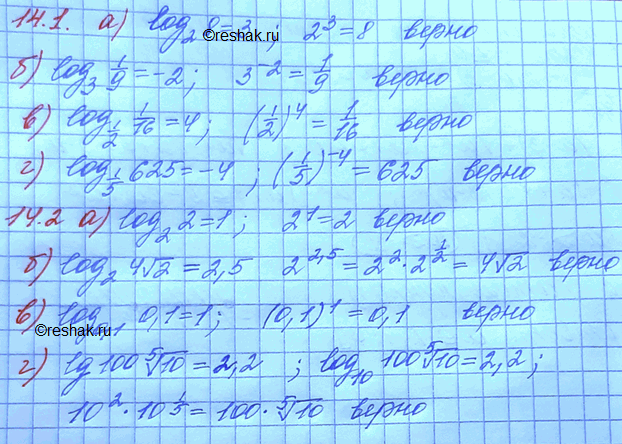 14.1. а) log₂ 8 = 3; 2³ = 8 верно
©reshak.ru
б) log₃ 1/9 = -2; 3⁻² = 1/9 верно
в) log_{1/2} 1/16 = 4; (1/2)⁴ = 1/16 верно
г) log_{1/5} 625 = -4; (1/5)⁻⁴ = 625 верно
14.2 а) log₂ 2 = 1; 2¹ = 2 верно
б) log₂ 4√2 = 2,5 2^{2,5} = 2² · 2^{1/2} = 4√2 верно
в) log 1 0,1 = 1; (0,1)¹ = 0,1 верно
©reshak.ru
г) lg 100 ⁵√10 = 2,2; log₁₀ 100 ⁵√10 = 2,2;
10² · 10^{1/5} = 100 · ⁵√10 верно